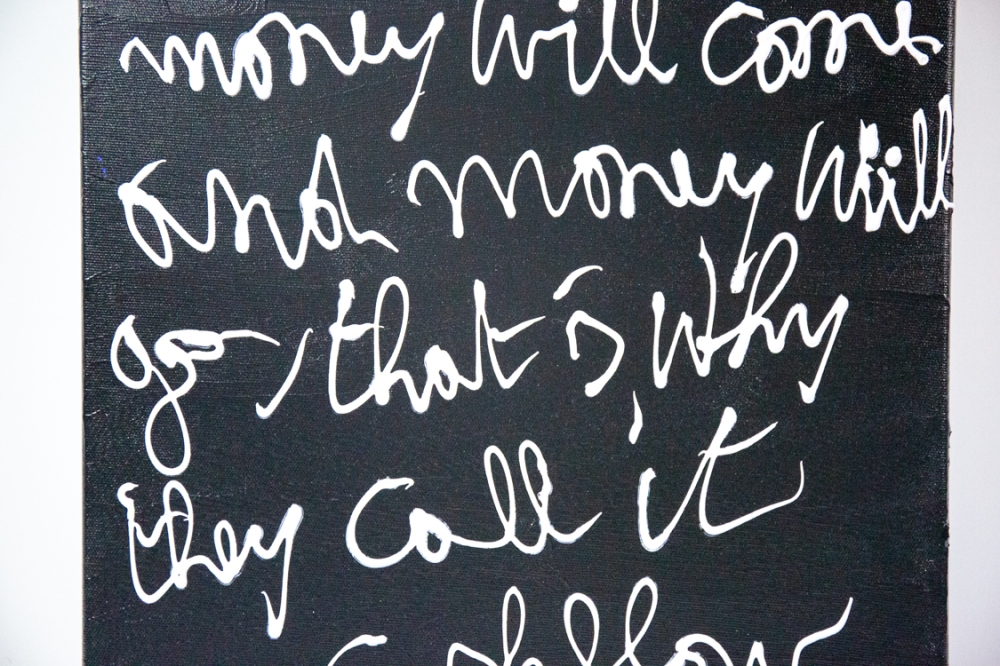 money will come
and money will
go, that's why
they call it
cashflow